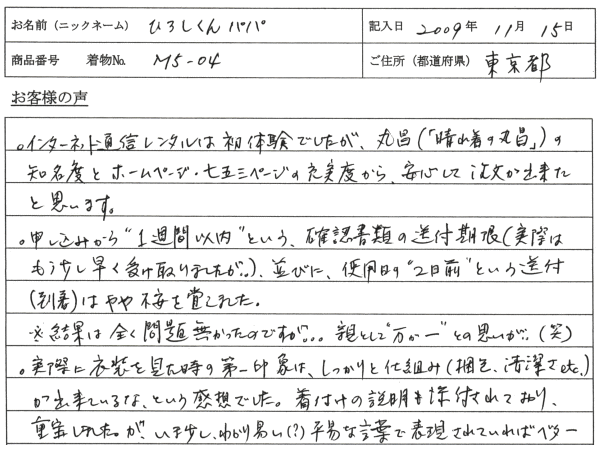 お名前（ニックネーム） ひろしくんパパ 記入日 2009年 11月 15日
商品番号 着物No. M5-04 ご住所（都道府県） 東京都
お客様の声
。インターネット通信レンタルは初体験でしたが、丸昌（「晴れ着の丸昌」）の
知名度とホームページ・七五三ページの充実度から、安心して注文が出来た
と思います。
。申し込みから“1週間以内”という、確認書類の送付期限（実際は
もう少し早く受け取りましたが..）、並びに、使用日の“2日前”という送付
（到着）はやや不安を覚えました。
※結果は全く問題無かったのですが... 親として“万が一”との思いが..（笑）
。実際に衣装を見た時の第一印象は、しっかりと仕組み（梱包、清潔さetc.）
が出来ているな、という感想でした。着付けの説明も添付されており、
重宝しました。が、いま少し、わかり易い（？）平易な言葉で表現されていればベター